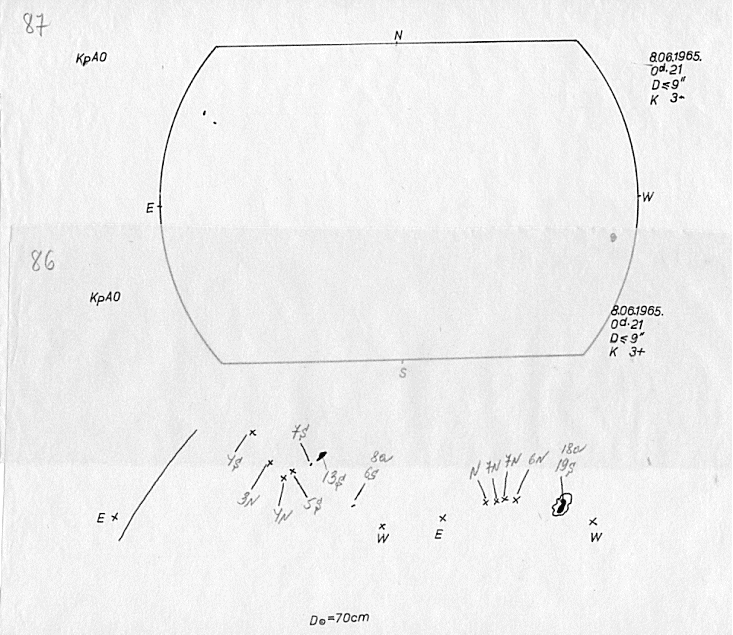 87
N
KpAO
8.06.1965.
0d.21
D≤9"
K 3+
E
W
86
KpAO
8.06.1965.
0d.21
D≤9"
K 3+
S
7S
4S
3N
4N
5S
13S
6S
N 7N 7N 6N
19S
E
W
E
W
D⊙=70cm